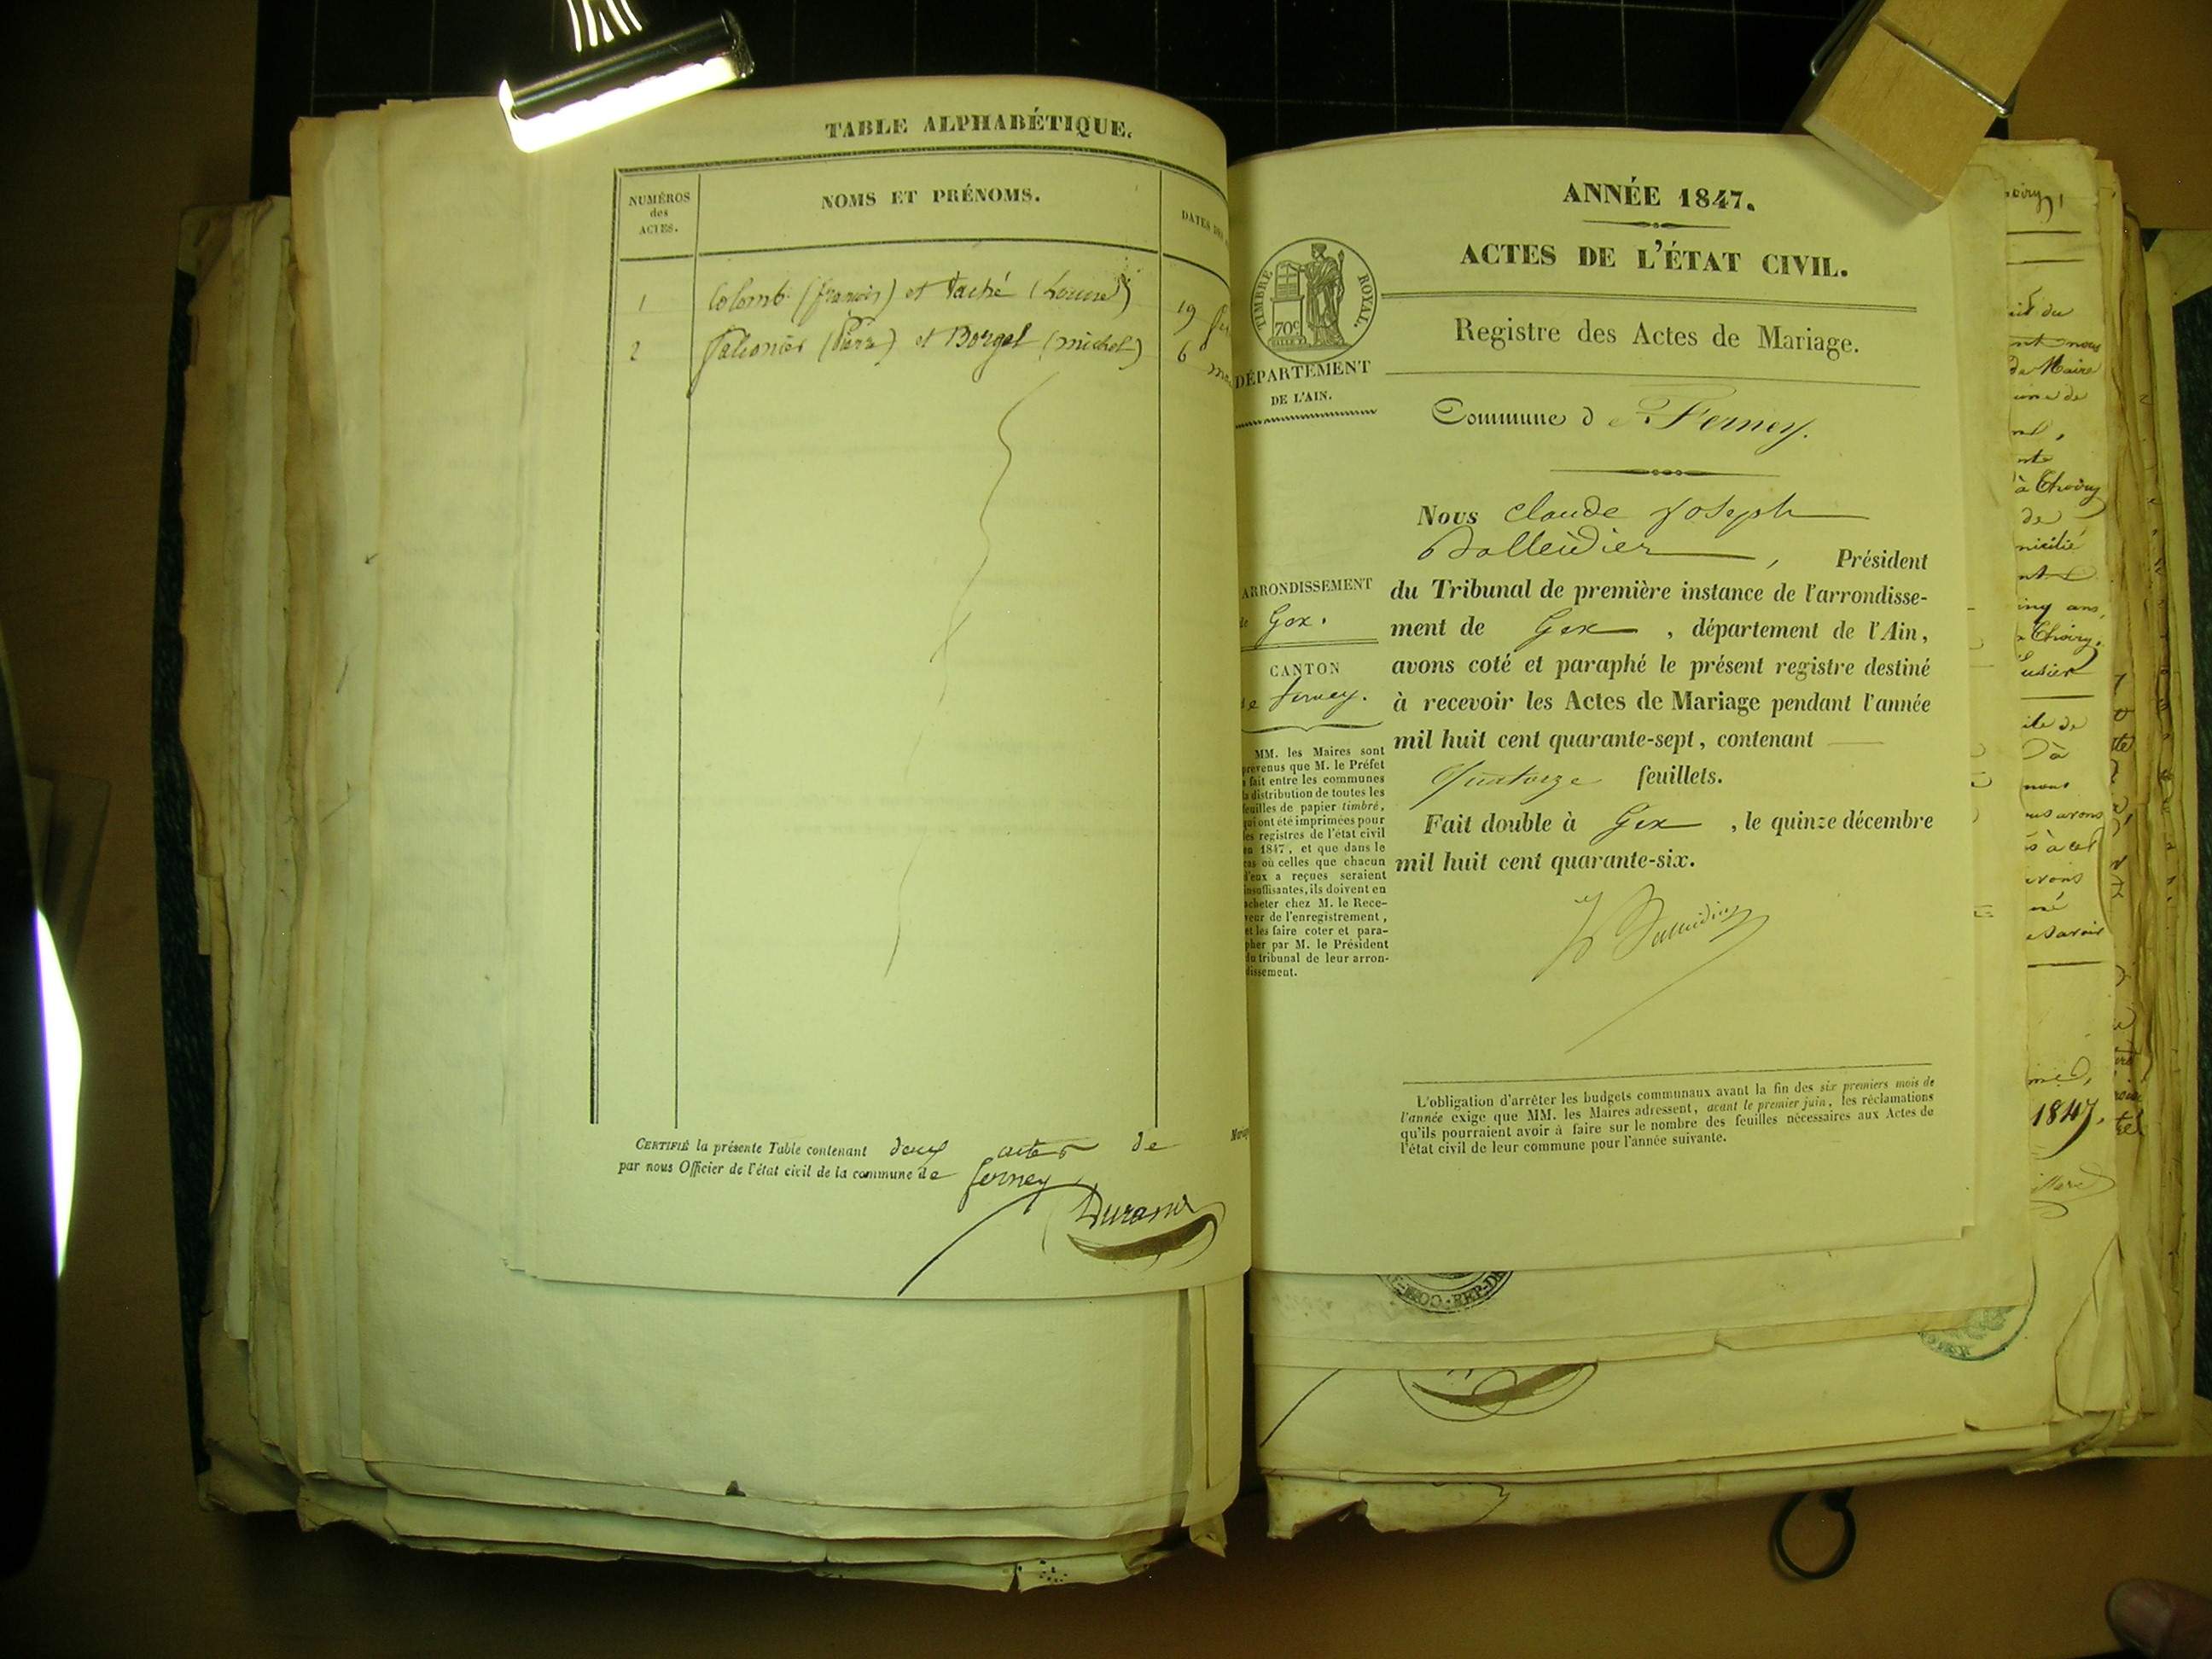 TABLE ALPHABÉTIQUE.
NUMÉROS
des
ACTES.
NOMS ET PRÉNOMS.
DATES DES
1 Colomb (francois) et Taché (Louise) 19
2 (Pierre) et Borgel (michel) 6
CERTIFIÉ la présente Table contenant deux actes de
par nous Officier de l'état civil de la commune de ferney
Durand
ANNÉE 1847.
ACTES DE L'ÉTAT CIVIL.
TIMBRE ROYAL.
70c
DÉPARTEMENT
DE L'AIN.
Registre des Actes de Mariage.
Commune de Ferney.
Nous Claude Joseph
Balleidier, Président
du Tribunal de première instance de l'arrondisse-
ment de Gex, département de l'Ain,
avons coté et paraphé le présent registre destiné
à recevoir les Actes de Mariage pendant l'année
mil huit cent quarante-sept, contenant
Quatorze feuillets.
Fait double à Gex, le quinze décembre
mil huit cent quarante-six.
Balleidier
ARRONDISSEMENT
de Gex.
CANTON
de Ferney.
MM. les Maires sont
prévenus que M. le Préfet
a fait entre les communes
la distribution de toutes les
feuilles de papier timbré,
qui ont été imprimées pour
les registres de l'état civil
en 1847, et que dans le
cas où celles que chacun
d'eux a reçues seraient
insuffisantes, ils doivent en
acheter chez M. le Rece-
veur de l'enregistrement,
et les faire coter et para-
pher par M. le Président
du tribunal de leur arron-
dissement.
L'obligation d'arrêter les budgets communaux avant la fin des six premiers mois de
l'année exige que MM. les Maires adressent, avant le premier juin, les réclamations
qu'ils pourraient avoir à faire sur le nombre des feuilles nécessaires aux Actes de
l'état civil de leur commune pour l'année suivante.
de Maire
à Thoiry
de
ing ans,
Thoiry.
1847.